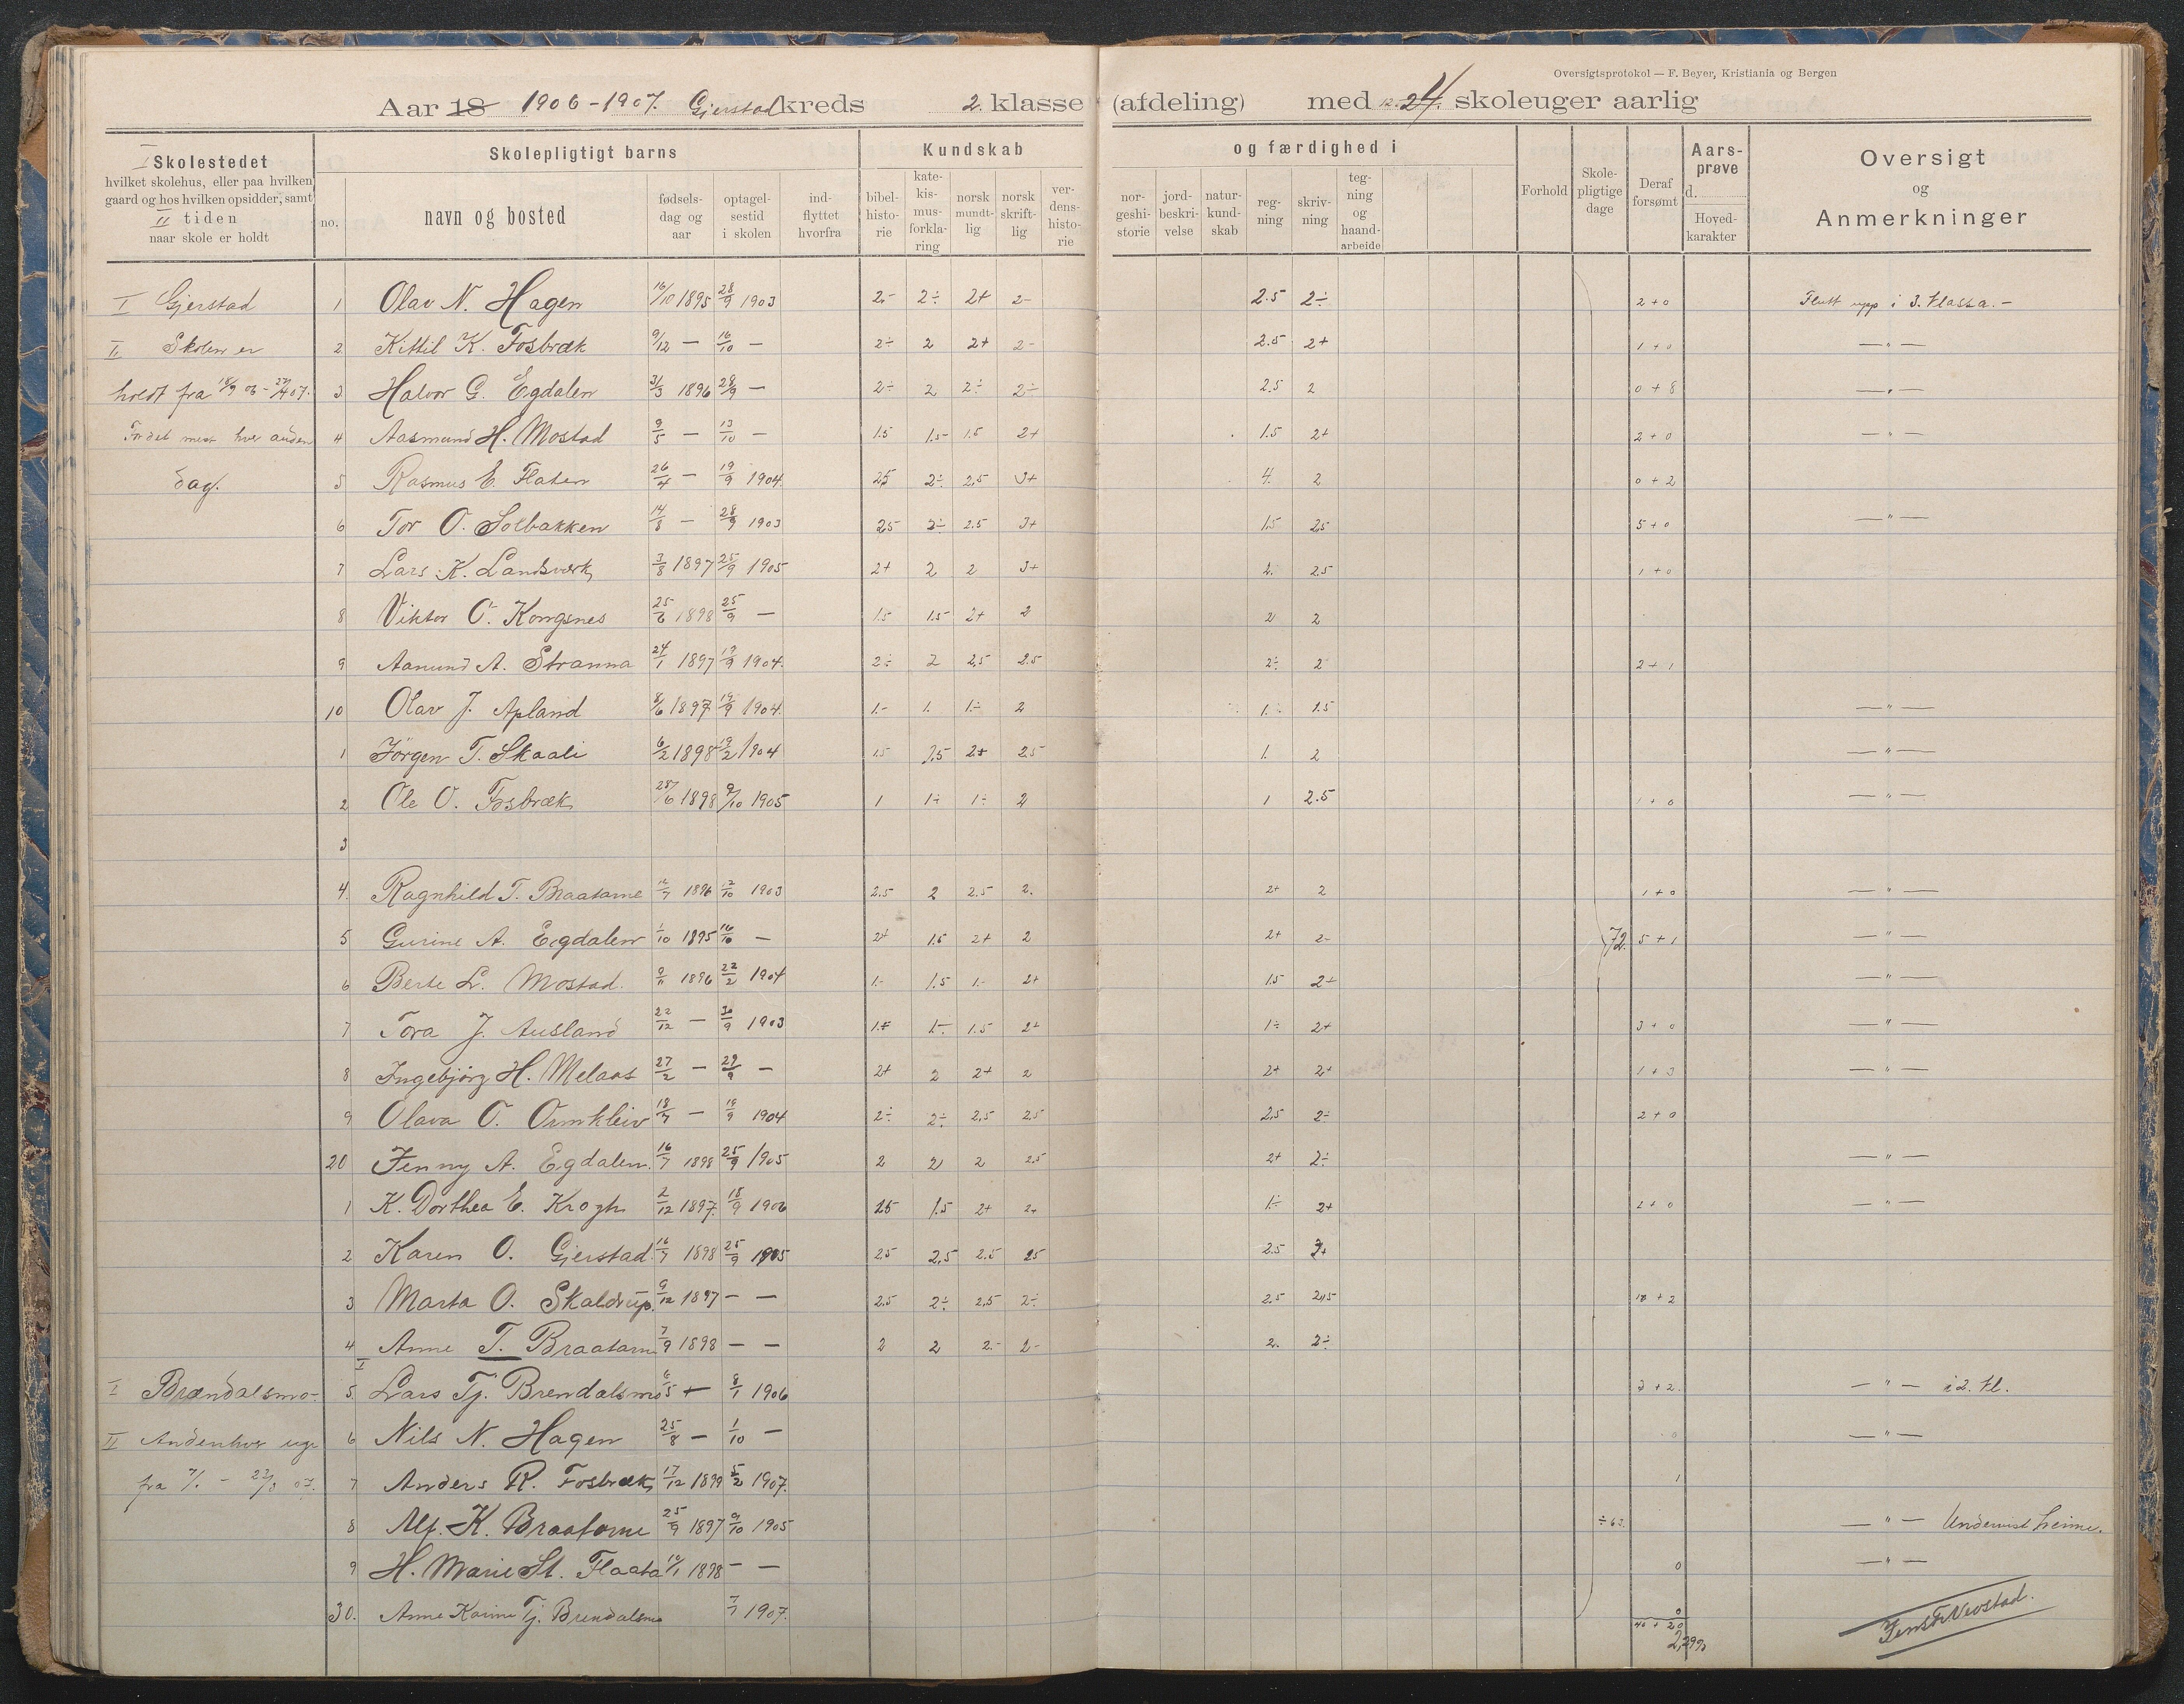 Oversigtsprotokol — F. Beyer, Kristiania og Bergen
Aar 18 1906-1907. Gjerstad kreds 2. klasse (afdeling) med 12. 24. skoleuger aarlig
I Skolestedet
hvilket skolehus, eller paa hvilken
gaard og hos hvilken opsidder, samt
II tiden
naar skole er holdt
Skolepligtigt barns
no. navn og bosted
fødselsdag og aar
optagelsestid i skolen
indflyttet hvorfra
Kundskab og færdighed i
bibelhistorie
katekismusforklaring
norsk mundtlig
norsk skriftlig
verdenshistorie
norgeshistorie
jordbeskrivelse
naturkundskab
regning
skrivning
tegning og haandarbeide
Forhold
Skolepligtige dage
Deraf forsømt
Aarsprøve
d.
Hovedkarakter
Oversigt
og
Anmerkninger
I Gjerstad 1 Olav N. Hagen 16/10 1895 28/9 1903 2.- 2÷ 2+ 2- 2.5 2÷ 2+0 Flutt upp i 3. klassa.-
II Skolen er 2 Kittil K. Fosbræk 9/12 — 16/10 — 2÷ 2 2+ 2- 2.5 2+ 1+0 —"—
holdt fra 18/9 06- 27/4 07. 3 Halvor G. Egdalen 31/3 1896 28/9 — 2÷ 2 2÷ 2÷ 2.5 2 0+8 —"—
For det mest hver anden 4 Aasmund H. Mostad 9/5 — 13/10 — 1.5 1.5- 1.5 2+ 1.5 2+ 2+0 —"—
dag. 5 Rasmus E. Flaten 26/4 — 19/9 1904. 2.5 2÷ 2.5 3+ 4. 2 0+2 —"—
6 Tor O. Solbakken 14/8 — 28/9 1903 2.5 2÷ 2.5 3+ 1.5 2.5 5+0 —"—
7 Lars K. Landsverk 3/8 1897 25/9 1905 2+ 2 2 3+ 2. 2.5 1+0
8 Viktor O. Kongsnes 25/6 1898 25/9 — 1.5 1.5 2+ 2 2 2
9 Aanund A. Stranna 24/1 1897 19/9 1904. 2÷ 2 2.5 2.5 2÷ 2 2+1
10 Olav J. Apland 8/6 1897 19/9 1904. 1.- 1. 1÷ 2 1. 1.5 —"—
1 Jörgen T. Skaali 6/2 1898 19/2 1904 1.5 2.5 2+ 2.5 1. 2 —"—
2 Ole O. Fosbræk 28/6 1898 9/10 1905 1 1÷ 1÷ 2 1 2.5 1+0 —"—
3
4. Ragnhild T. Braatane 12/7 1896 12/10 1903 2.5 2 2.5 2. 2+ 2 1+0 —"—
5 Gurine A. Egdalen 1/10 1895 16/10 — 2+ 1.5 2+ 2 2+ 2- 72. 5+1 —"—
6 Berte L. Mostad. 9/11 1896 22/2 1904 1.- 1.5 1.- 2+ 1.5 2+ —"—
7 Tora J. Ausland 22/12 — 30/9 1903 1÷ 1.5 2+ 1÷ 2+ 3+0 —"—
8 Ingebjörg H. Melaas 27/2 — 29/9 — 2+ 2 2+ 2 2+ 2+ 1+3 —"—
9 Olava O. Ormkleiv 18/7 — 19/9 1904 2÷ 2÷ 2.5 2.5 2.5 2÷ 2+0 —"—
20 Jenny A. Egdalen. 16/7 1898 25/9 1905 2 2 2 2.5 2+ 2÷ —"—
1 K. Dorthea E. Krogh 2/12 1897. 18/9 1906 2.5 1.5 2+ 2+ 1÷ 2+ 2+0 —"—
2 Karen O. Gjerstad. 16/7 1898 25/9 1905 2.5 2.5 2.5 2.5 2.5
3 Marta O. Skaldrup. 9/12 1897 — — 2.5 2÷ 2.5 2÷ 2.5 2.5 10+2
4 Anne T. Braatane 7/9 1898 — — 2 2 2.- 2- 2. 2÷
I Brændalsmo- 5. Lars Tj. Brendalsmo 6/5 + 8/1 1906 3+2. —"— i 2. kl.
II Anden hver uge 6 Nils N. Hagen 25/8 — 1/10 — 0 —"—
fra 7/1 - 23/3 07. 7 Anders R. Fosbræk 17/12 1899 5/2 1907. 1
8 Alf. K. Braatane 25/9 1897 9/10 1905 ÷63. —"— Undervist heime.
9 H. Marie St. Flaata 10/1 1898 — — 0 —"—
30. Anne Karine Tj. Brendalsmo 7/1 1907. 0
40+20
2,29%